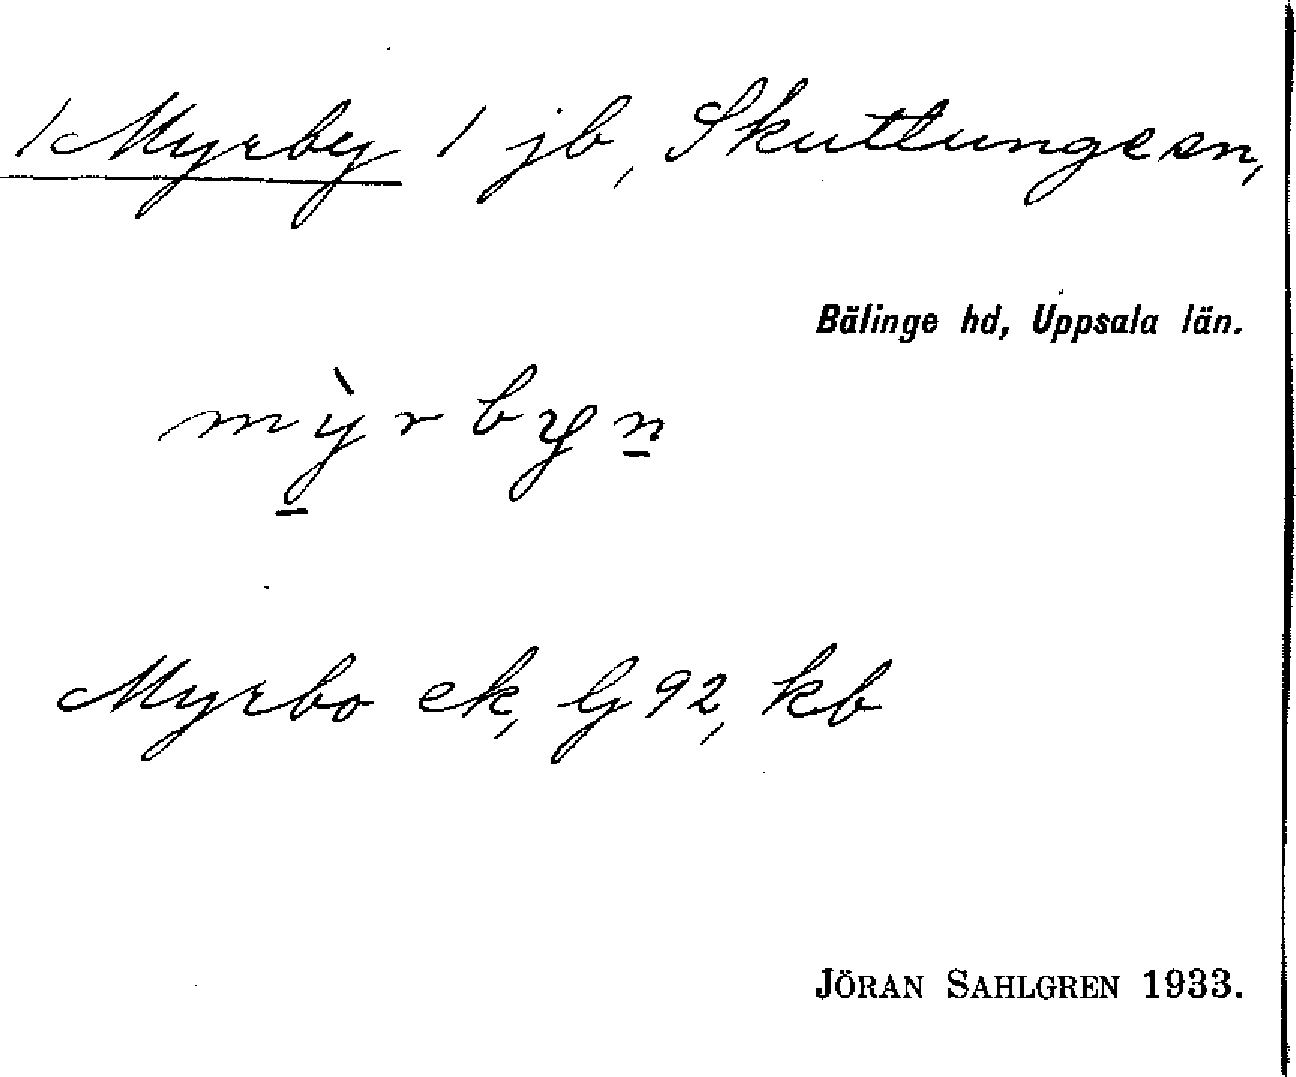 /Myrby / jb, Skuttunge sn,
Bälinge hd, Uppsala län.
mỳrbyn
Myrbo ek, G92, kb
JÖRAN SAHLGREN 1933.